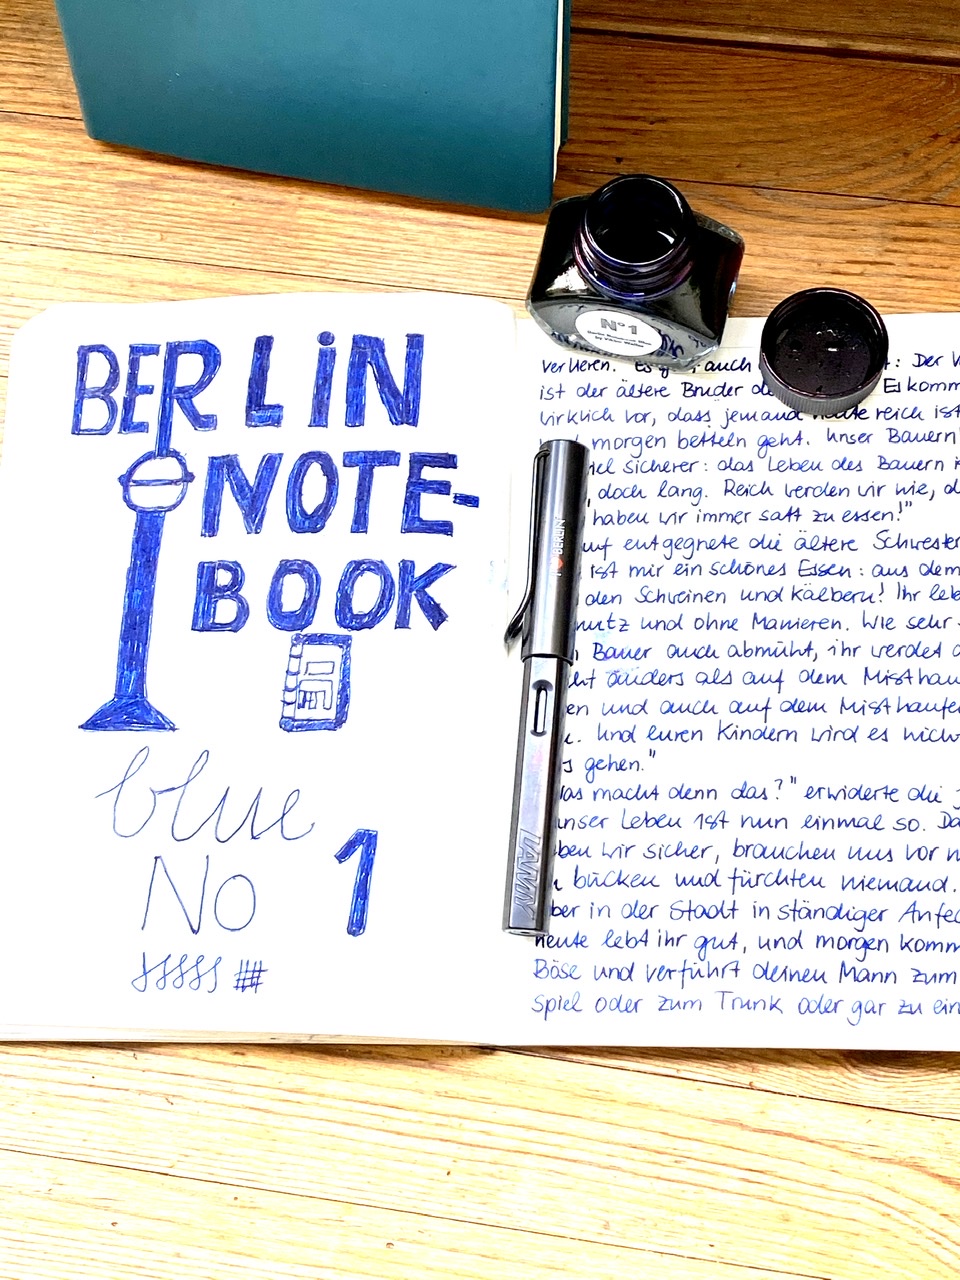 BERLiN
NOTE-
BOOK
blue
No 1
N°1
Berlin Notebook Blue
by Viktor Walter
I ❤ BERLIN
LAMY
verlieren. Es auch : Der
ist der ältere Bruder Es komm
wirklich vor, dass jemand heute reich ist
morgen betteln geht. Unser Bauern
viel sicherer: das Leben des Bauern
, doch lang. Reich werden wir nie, d
haben wir immer satt zu essen!"
auf entgegnete die ältere Schwester
ist mir ein schönes Essen: aus dem
den Schweinen und Kälbern! Ihr leb
nutz und ohne Manieren. Wie sehr
Bauer auch abmüht, ihr werdet
ht anders als auf dem Misthau
en und auch auf dem Misthaufen
. Und euren Kindern wird es nich
s gehen."
as macht denn das?" erwiderte die j
unser Leben ist nun einmal so. Da
ben wir sicher, brauchen uns vor n
bücken und fürchten niemand.
ber in der Stadt in ständiger Anfec
heute lebt ihr gut, und morgen komm
Böse und verführt deinen Mann zum
Spiel oder zum Trunk oder gar zu ein